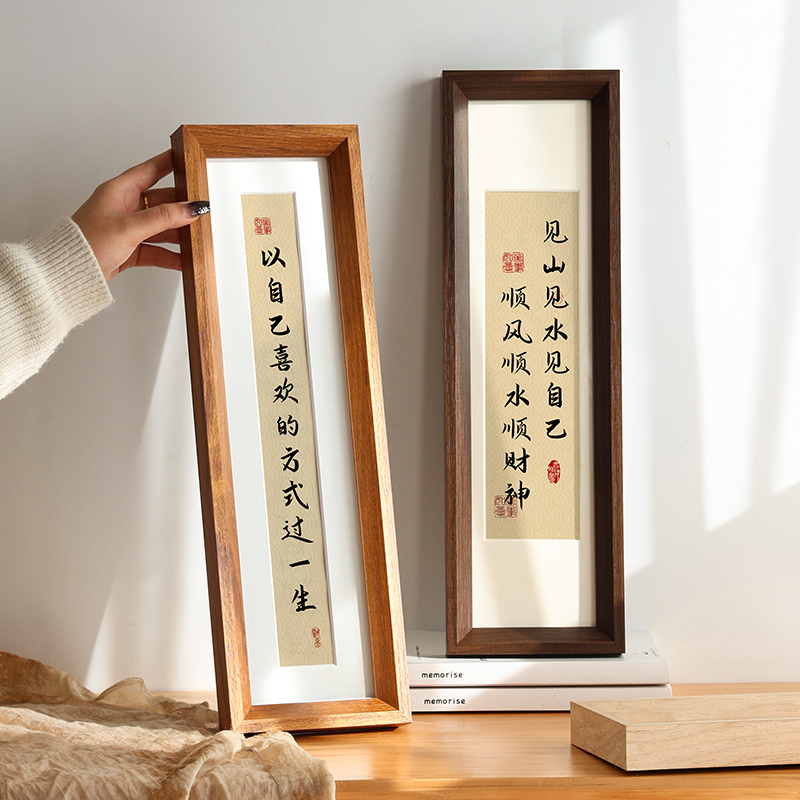 以自己喜欢的方式过一生
见山见水见自己
顺风顺水顺财神
memorise
memorise